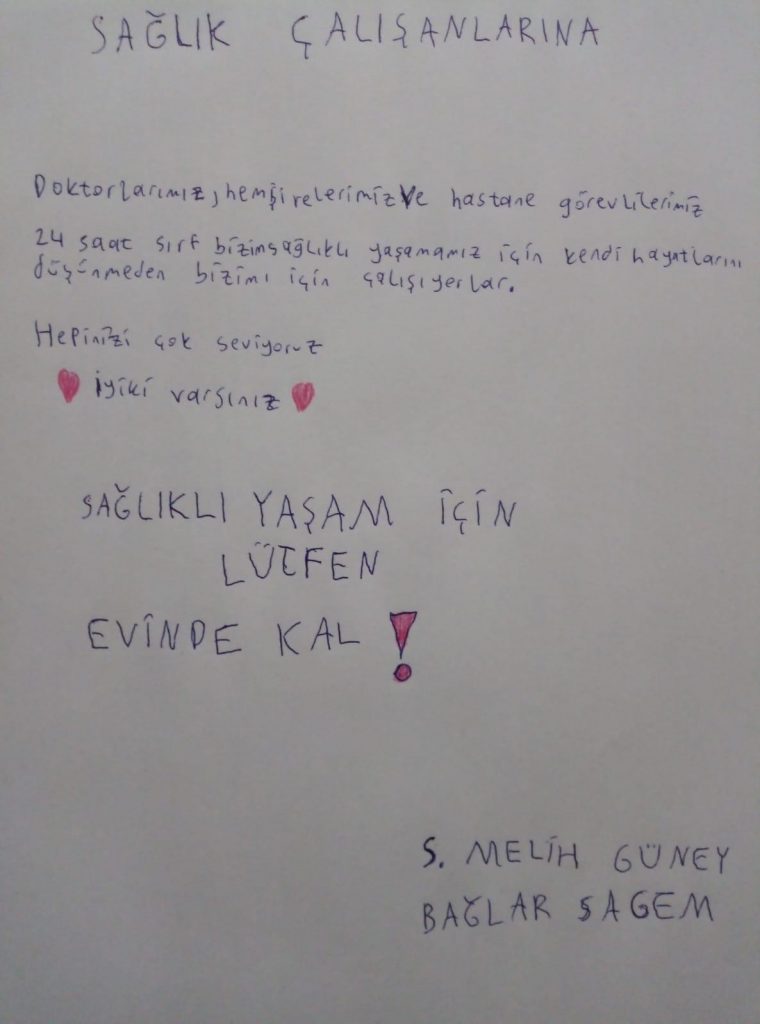 SAĞLIK ÇALIŞANLARINA
Doktorlarımız, hemşirelerimiz Ve hastane görevlilerimiz
24 saat sırf bizim sağlıklı yaşamamız için kendi hayatlarını
düşünmeden bizimı için çalışıyerlar.
Hepinizi çok seviyoruz
iyiki varsınız
SAĞLIKLI YAŞAM İÇİN
LÜTFEN
EVİNDE KAL !
S. MELİH GÜNEY
BAĞLAR SAGEM